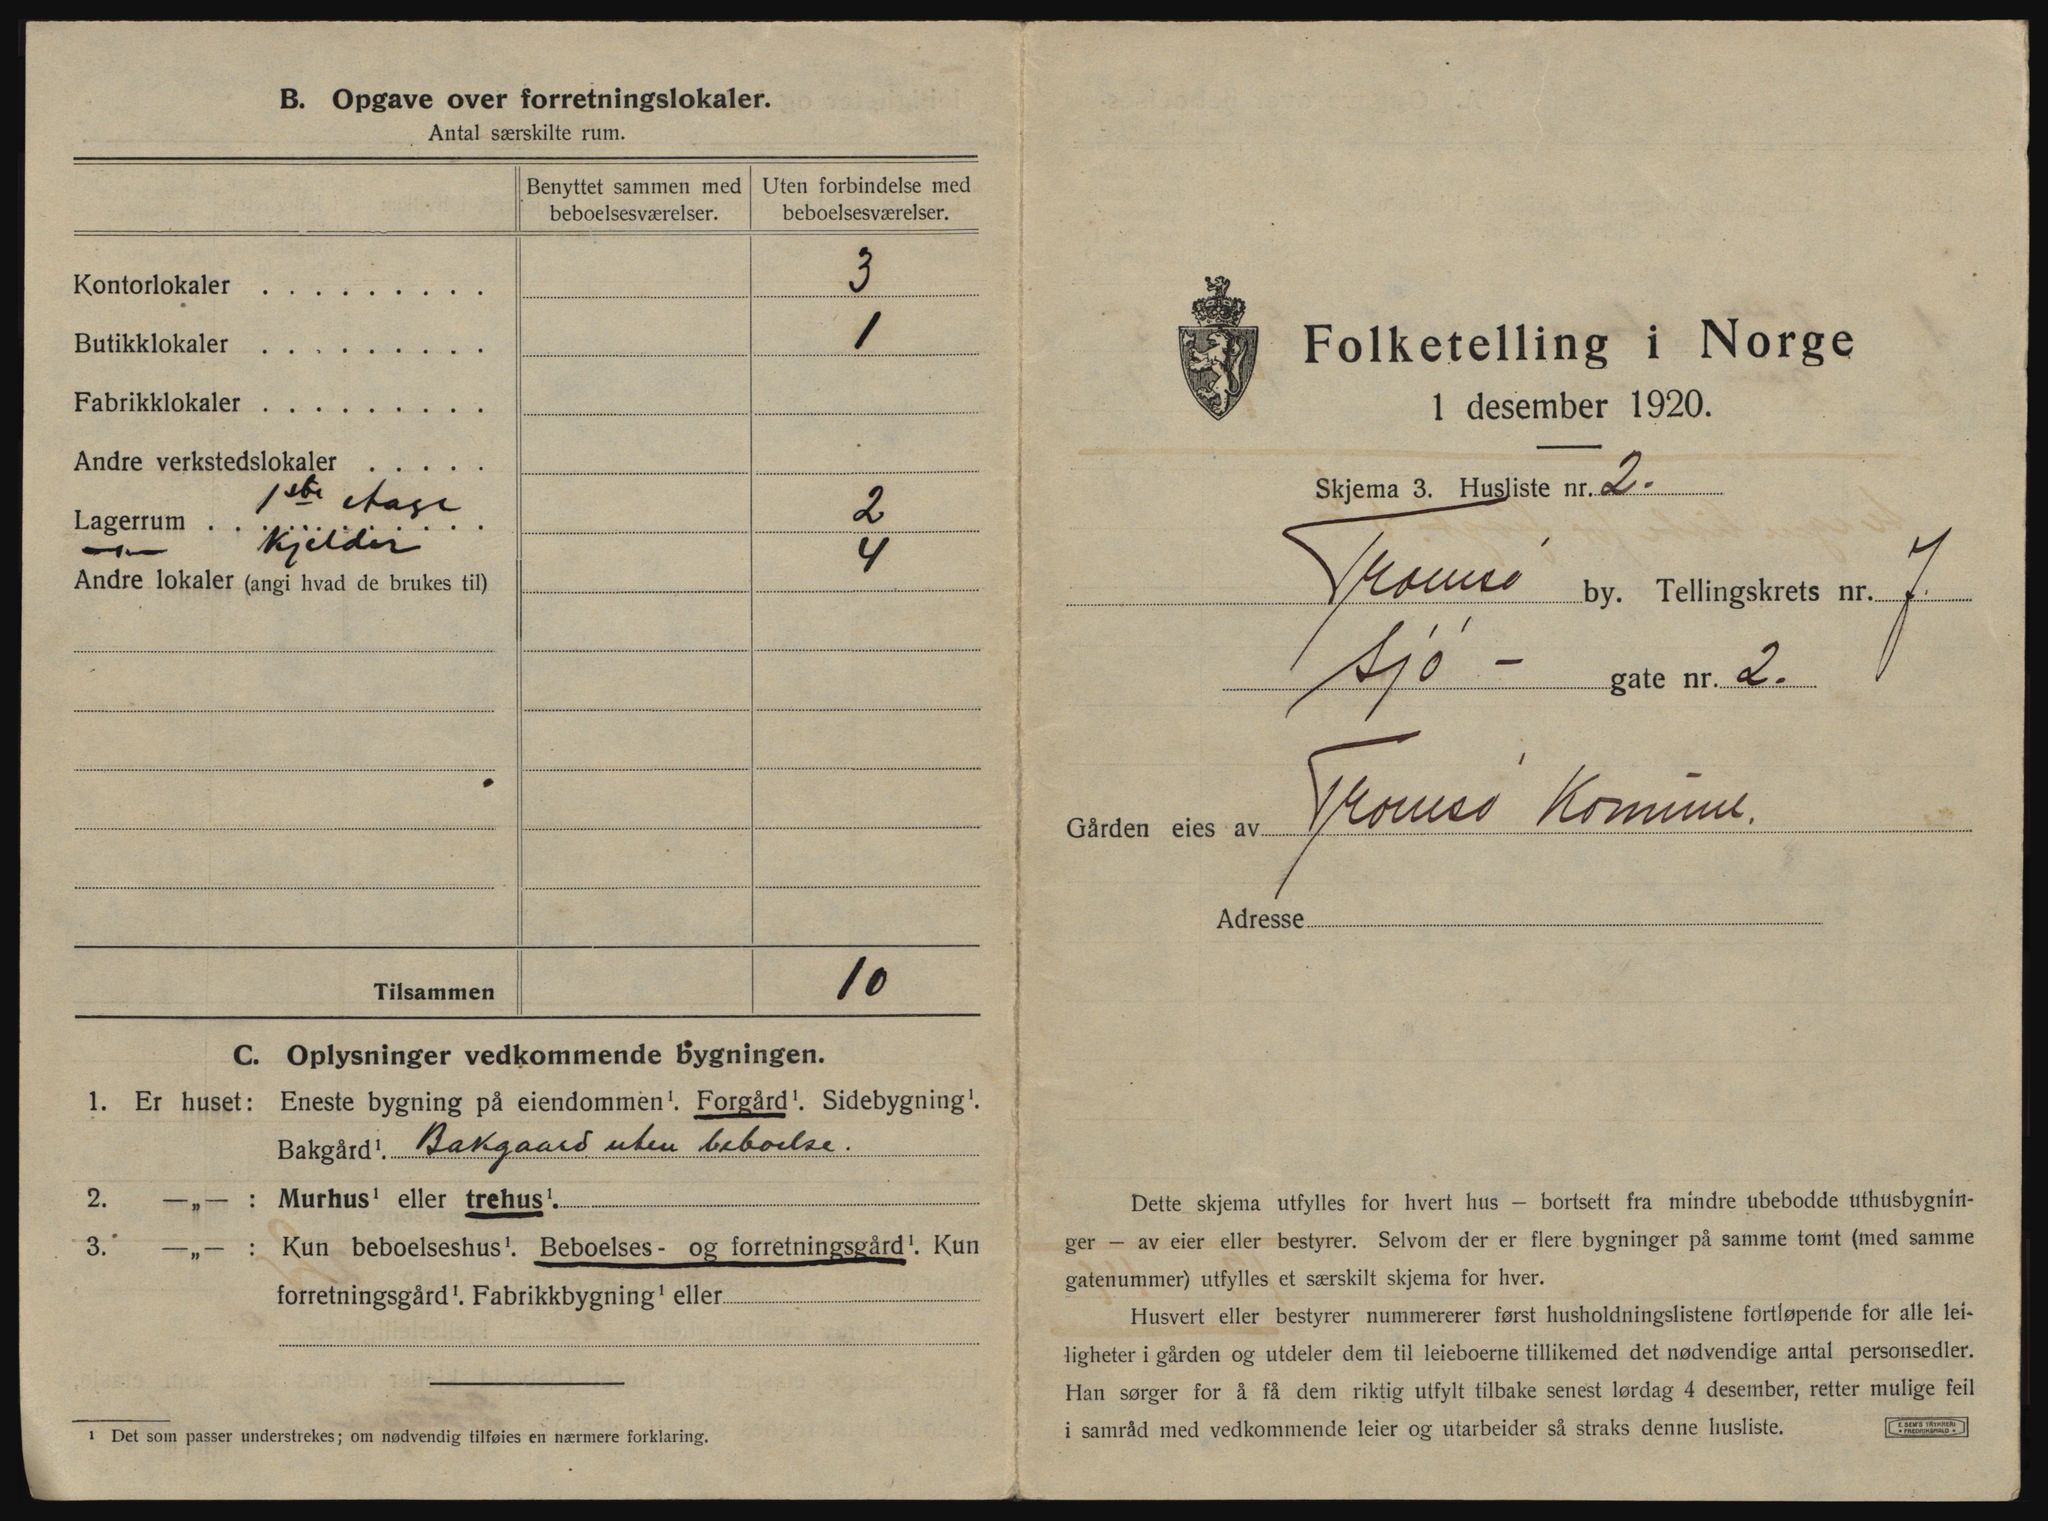 B. Opgave over forretningslokaler.
Antal særskilte rum.
Benyttet sammen med beboelsesværelser.
Uten forbindelse med beboelsesværelser.
Kontorlokaler . . . . . . . . . 3
Butikklokaler . . . . . . . . . 1
Fabrikklokaler . . . . . . . . .
Andre verkstedslokaler . . . . .
Lagerrum . . 1ste etage 2
—„— Kjelder 4
Andre lokaler (angi hvad de brukes til)
Tilsammen 10
C. Oplysninger vedkommende bygningen.
1. Er huset: Eneste bygning på eiendommen¹. Forgård¹. Sidebygning¹.
Bakgård¹. Bakgaard uten beboelse.
2. —„— : Murhus¹ eller trehus¹.
3. —„— : Kun beboelseshus¹. Beboelses- og forretningsgård¹. Kun
forretningsgård¹. Fabrikkbygning¹ eller
¹ Det som passer understrekes; om nødvendig tilføies en nærmere forklaring.
Folketelling i Norge
1 desember 1920.
Skjema 3. Husliste nr. 2.
Tromsö by. Tellingskrets nr. 7.
Sjö - gate nr. 2.
Gården eies av Tromsö Komune.
Adresse
Dette skjema utfylles for hvert hus — bortsett fra mindre ubebodde uthusbygnin-
ger — av eier eller bestyrer. Selvom der er flere bygninger på samme tomt (med samme
gatenummer) utfylles et særskilt skjema for hver.
Husvert eller bestyrer nummererer først husholdningslistene fortløpende for alle lei-
ligheter i gården og utdeler dem til leieboerne tillikemed det nødvendige antal personsedler.
Han sørger for å få dem riktig utfylt tilbake senest lørdag 4 desember, retter mulige feil
i samråd med vedkommende leier og utarbeider så straks denne husliste.
E. SEM'S TRYKKERI
FREDRIKSHALD